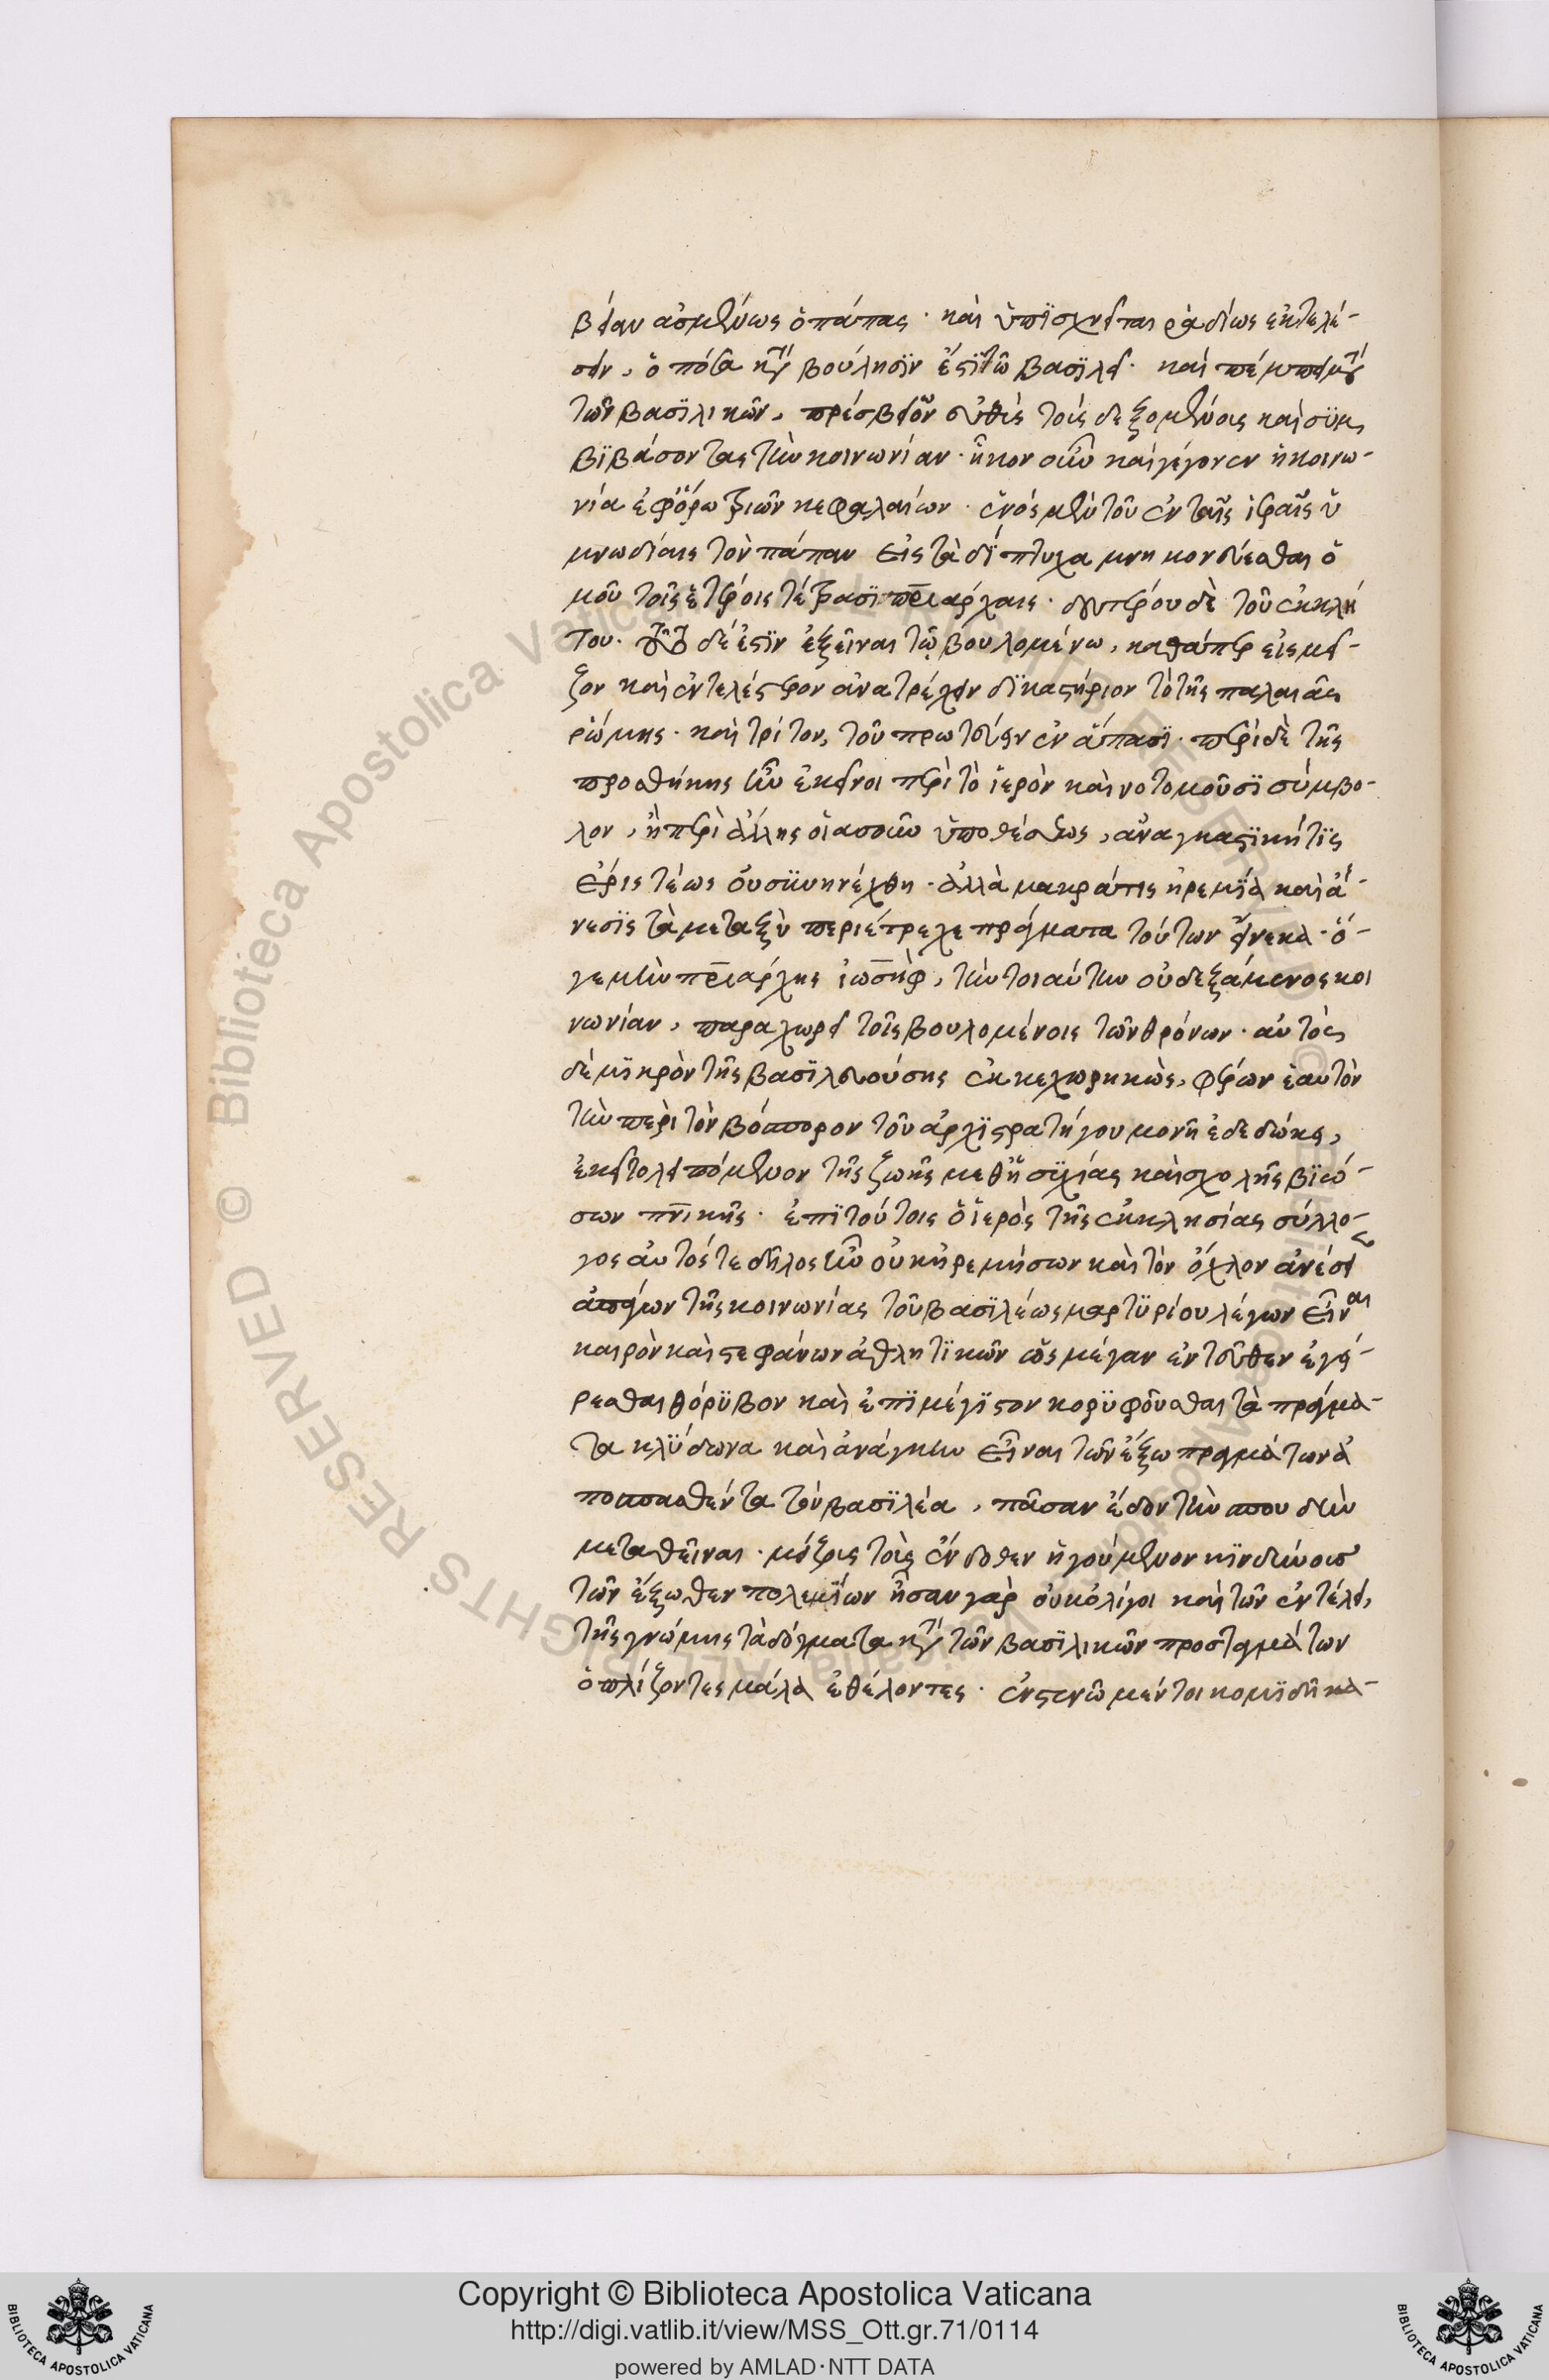 βείαν ἀσμένως ὁ πάπας · καὶ ὑπϊσχνεῖται ῥαδίως ἐκτελέ-
σειν, ὁπόσα κατὰ βούλησϊν ἐστὶ τῷ βασϊλεῖ · καὶ πέμπει μετὰ
τῶν βασϊλικῶν, πρέσβεων εὐθὺς τοὺς δεξομένους καὶ συμ
βϊβάσοντας τὴν κοινωνίαν · ἧκον οὖν καὶ γέγονεν ἡ κοινω-
νία ἐφ' ὅρῳ τριῶν κεφαλαίων · ἑνὸς μὲν τοῦ ἐν ταῖς ἱεραῖς ὑ
μνωδίαις τὸν πάπαν εἰς τὰ δίπτυχα μνημονεύεσθαι ὁ
μοῦ τοῖς ἑτέροις τέτρασϊ πριάρχαις · δευτέρου δὲ τοῦ ἐκκλή
του · τοῦτο δέ ἐστϊν ἐξεῖναι τῷ βουλομένω, καθάπερ εἰς μεῖ-
ζον καὶ ἐντελέστερον ἀνατρέχειν δϊκαστήριον τὸ τῆς παλαιᾶς
ῥώμης · καὶ τρίτον, τοῦ πρωτεύειν ἐν ἅπασϊ · περὶ δὲ τῆς
προσθήκης ἣν ἐκεῖνοι περὶ τὸ ἱερὸν καινοτομοῦσϊ σύμβο-
λον, ἢ περὶ ἄλλης οἱασοῦν ὑποθέσεως, ἀναγκαστϊκή τϊς
ἔρις τέως οὐ συνηνέχθη · ἀλλὰ μακρά τις ἠρεμία καὶ ἄ-
νεσϊς τὰ μεταξὺ περιέτρεχε πράγματα τούτων εἵνεκα · ὅ-
γε μὴν πριάρχης ἰωσὴφ, τὴν τοιαύτην οὐ δεξάμενος κοι
νωνίαν, παραχωρεῖ τοῖς βουλομένοις τῶν θρόνων · αὐτὸς
δὲ μϊκρὸν τῆς βασϊλευούσης ἐκκεχωρηκὼς, φέρων ἑαυτὸν
τῇ περὶ τὸν βόσπορον τοῦ ἀρχϊστρατήγου μονῇ ἐδεδώκει,
ἐκεῖ τὸ λειπόμενον τῆς ζωῆς μεθ' ἡσϋχίας καὶ σχολῆς βϊώ-
σων πνικῆς · ἐπὶ τούτοις ὁ ἱερὸς τῆς ἐκκλησίας σύλλο-
γος αὐτός τε δῆλος ἦν οὐκ ἠρεμήσων καὶ τὸν ὄχλον ἀνέσει
ἀπάγων τῆς κοινωνίας τοῦ βασϊλέως μαρτϋρίου λέγων εἶναι
καιρὸν καὶ στεφάνων ἀθλητϊκῶν ὡς μέγαν ἐντεῦθεν ἐγεί-
ρεσθαι θόρϋβον καὶ ἐπὶ μέγϊστον κορϋφοῦσθαι τὰ πράγμα-
τα κλϋδωνα καὶ ἀνάγκην εἶναι τῶν ἔξω πραγμάτων ἀ
ποσπασθέντα τὸν βασϊλέα, πᾶσαν ἔνδον τὴν σπουδὴν
μεταθεῖναι · μείζους τοὺς ἔνδοθεν ἡγούμενον κϊνδύνους
τῶν ἔξωθεν πολεμίων ἦσαν γὰρ οὐκ ὀλίγοι καὶ τῶν ἐν τέλει,
τῆς γνώμης τὰ δόγματα κατὰ τῶν βασϊλικῶν προσταγμάτων
ὁπλίζοντες μάλα ἐθέλοντες · ἐν στενῷ μέντοι κομϊδῆ κα-
Copyright © Biblioteca Apostolica Vaticana
http://digi.vatlib.it/view/MSS_Ott.gr.71/0114
powered by AMLAD·NTT DATA